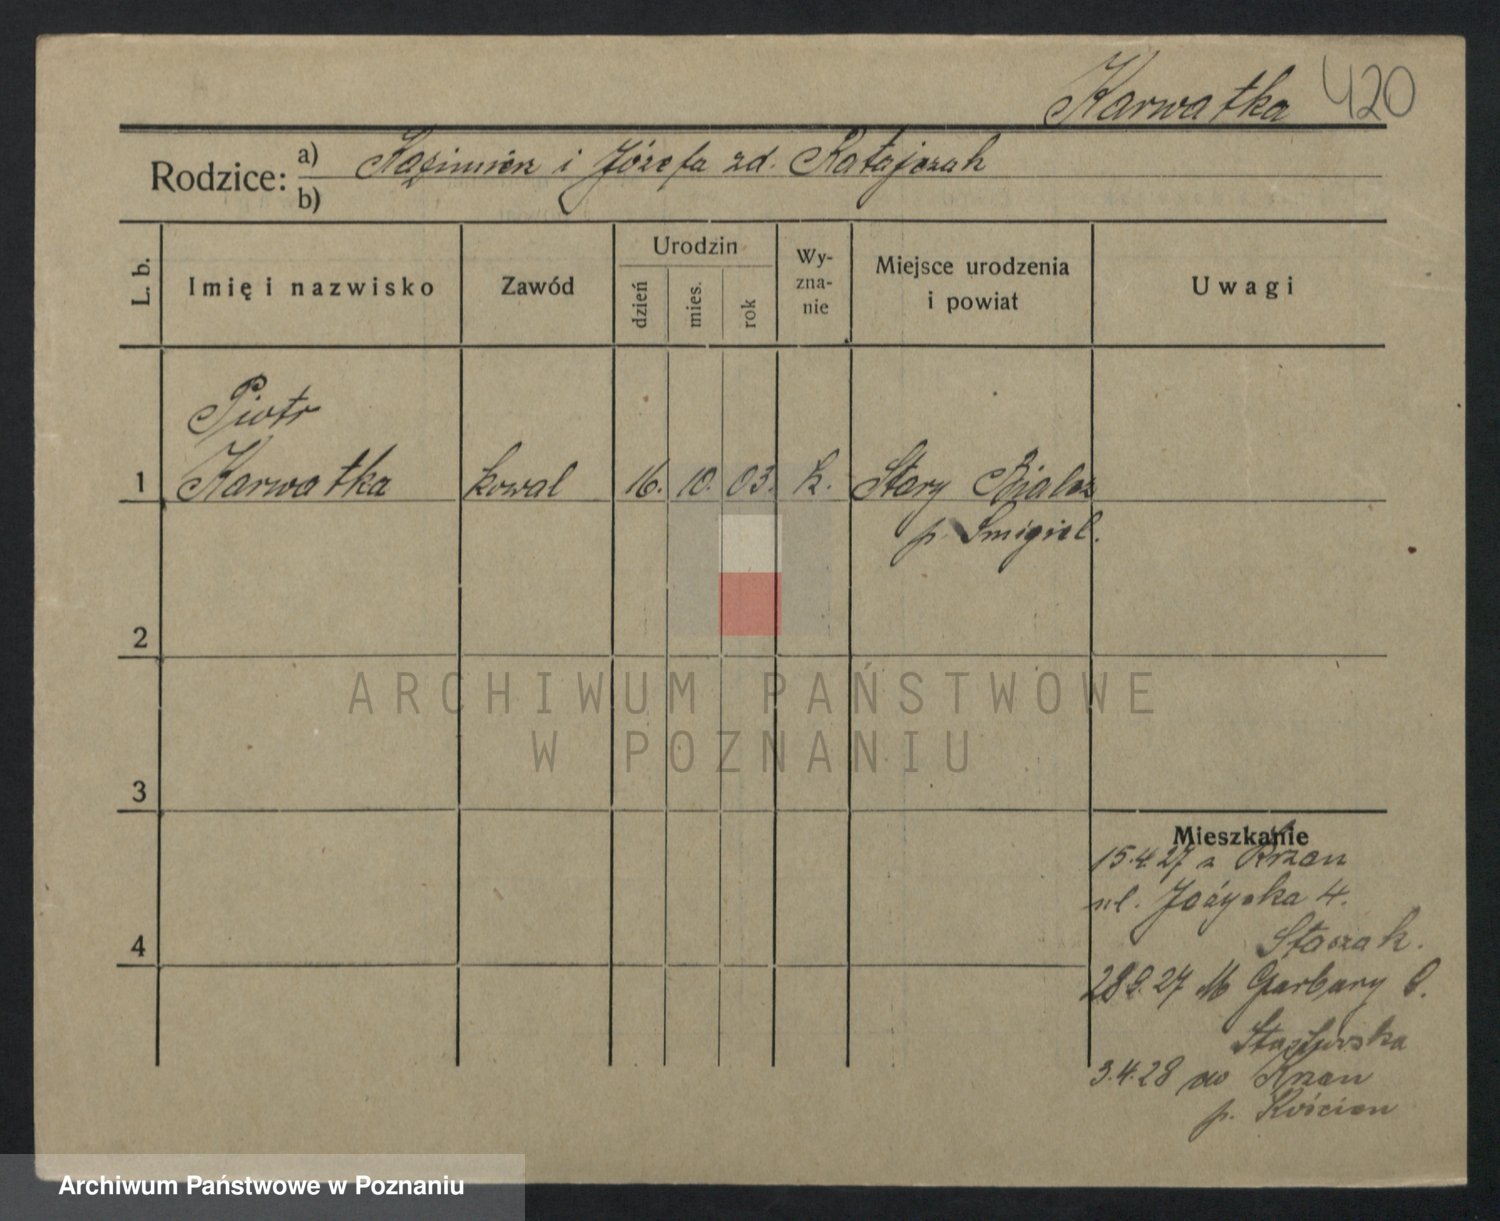 Karwatka 420
Rodzice: a) Kazimierz i Józefa zd. Ratajczak
b)
L. b.
Imię i nazwisko
Zawód
Urodzin
dzień
mies.
rok
Wy-
zna-
nie
Miejsce urodzenia
i powiat
Uwagi
Piotr
1 Karwatka kowal 16. 10. 03. k. Stary Białcz
p. Śmigiel.
2
3
4
ARCHIWUM PAŃSTWOWE
W POZNANIU
Mieszkanie
15.4.27 z Krzan
ul. 4.
Staszak.
28.9.27 M Garbary
3.4.28 do Krzan
p. Kościan
Archiwum Państwowe w Poznaniu